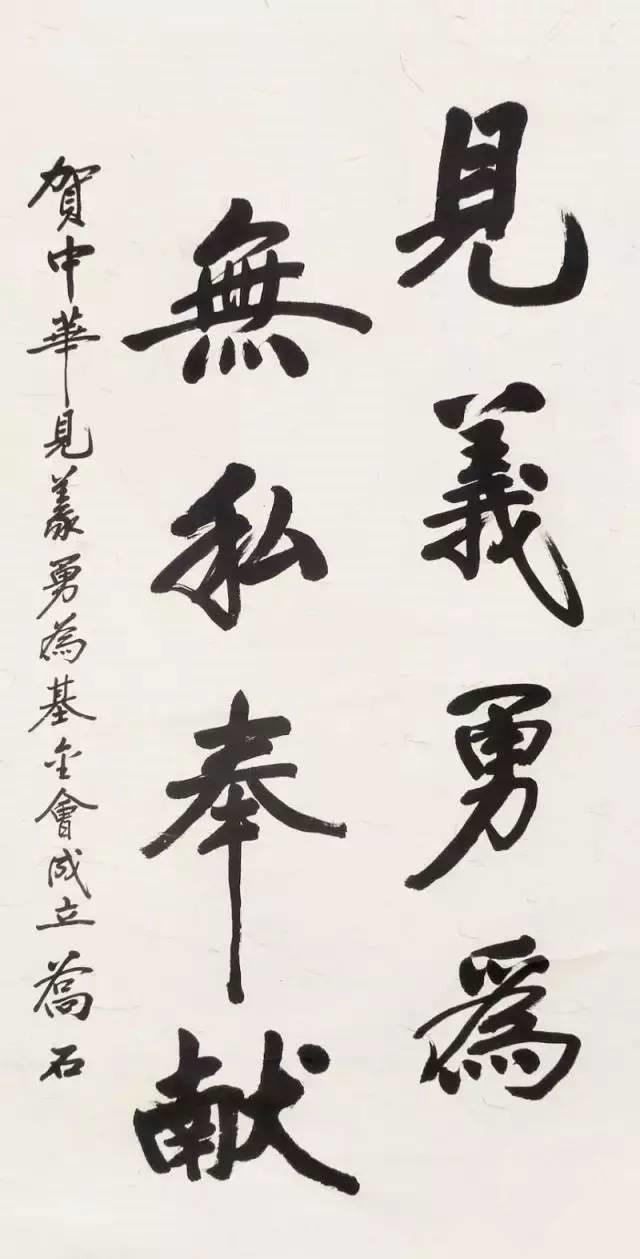 見義勇爲
無私奉献
賀中華見義勇為基金會成立 喬石